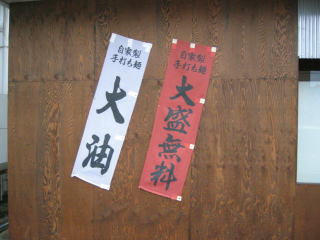 自家製
手打ち麺
大油
自家製
手打ち麺
大盛無料